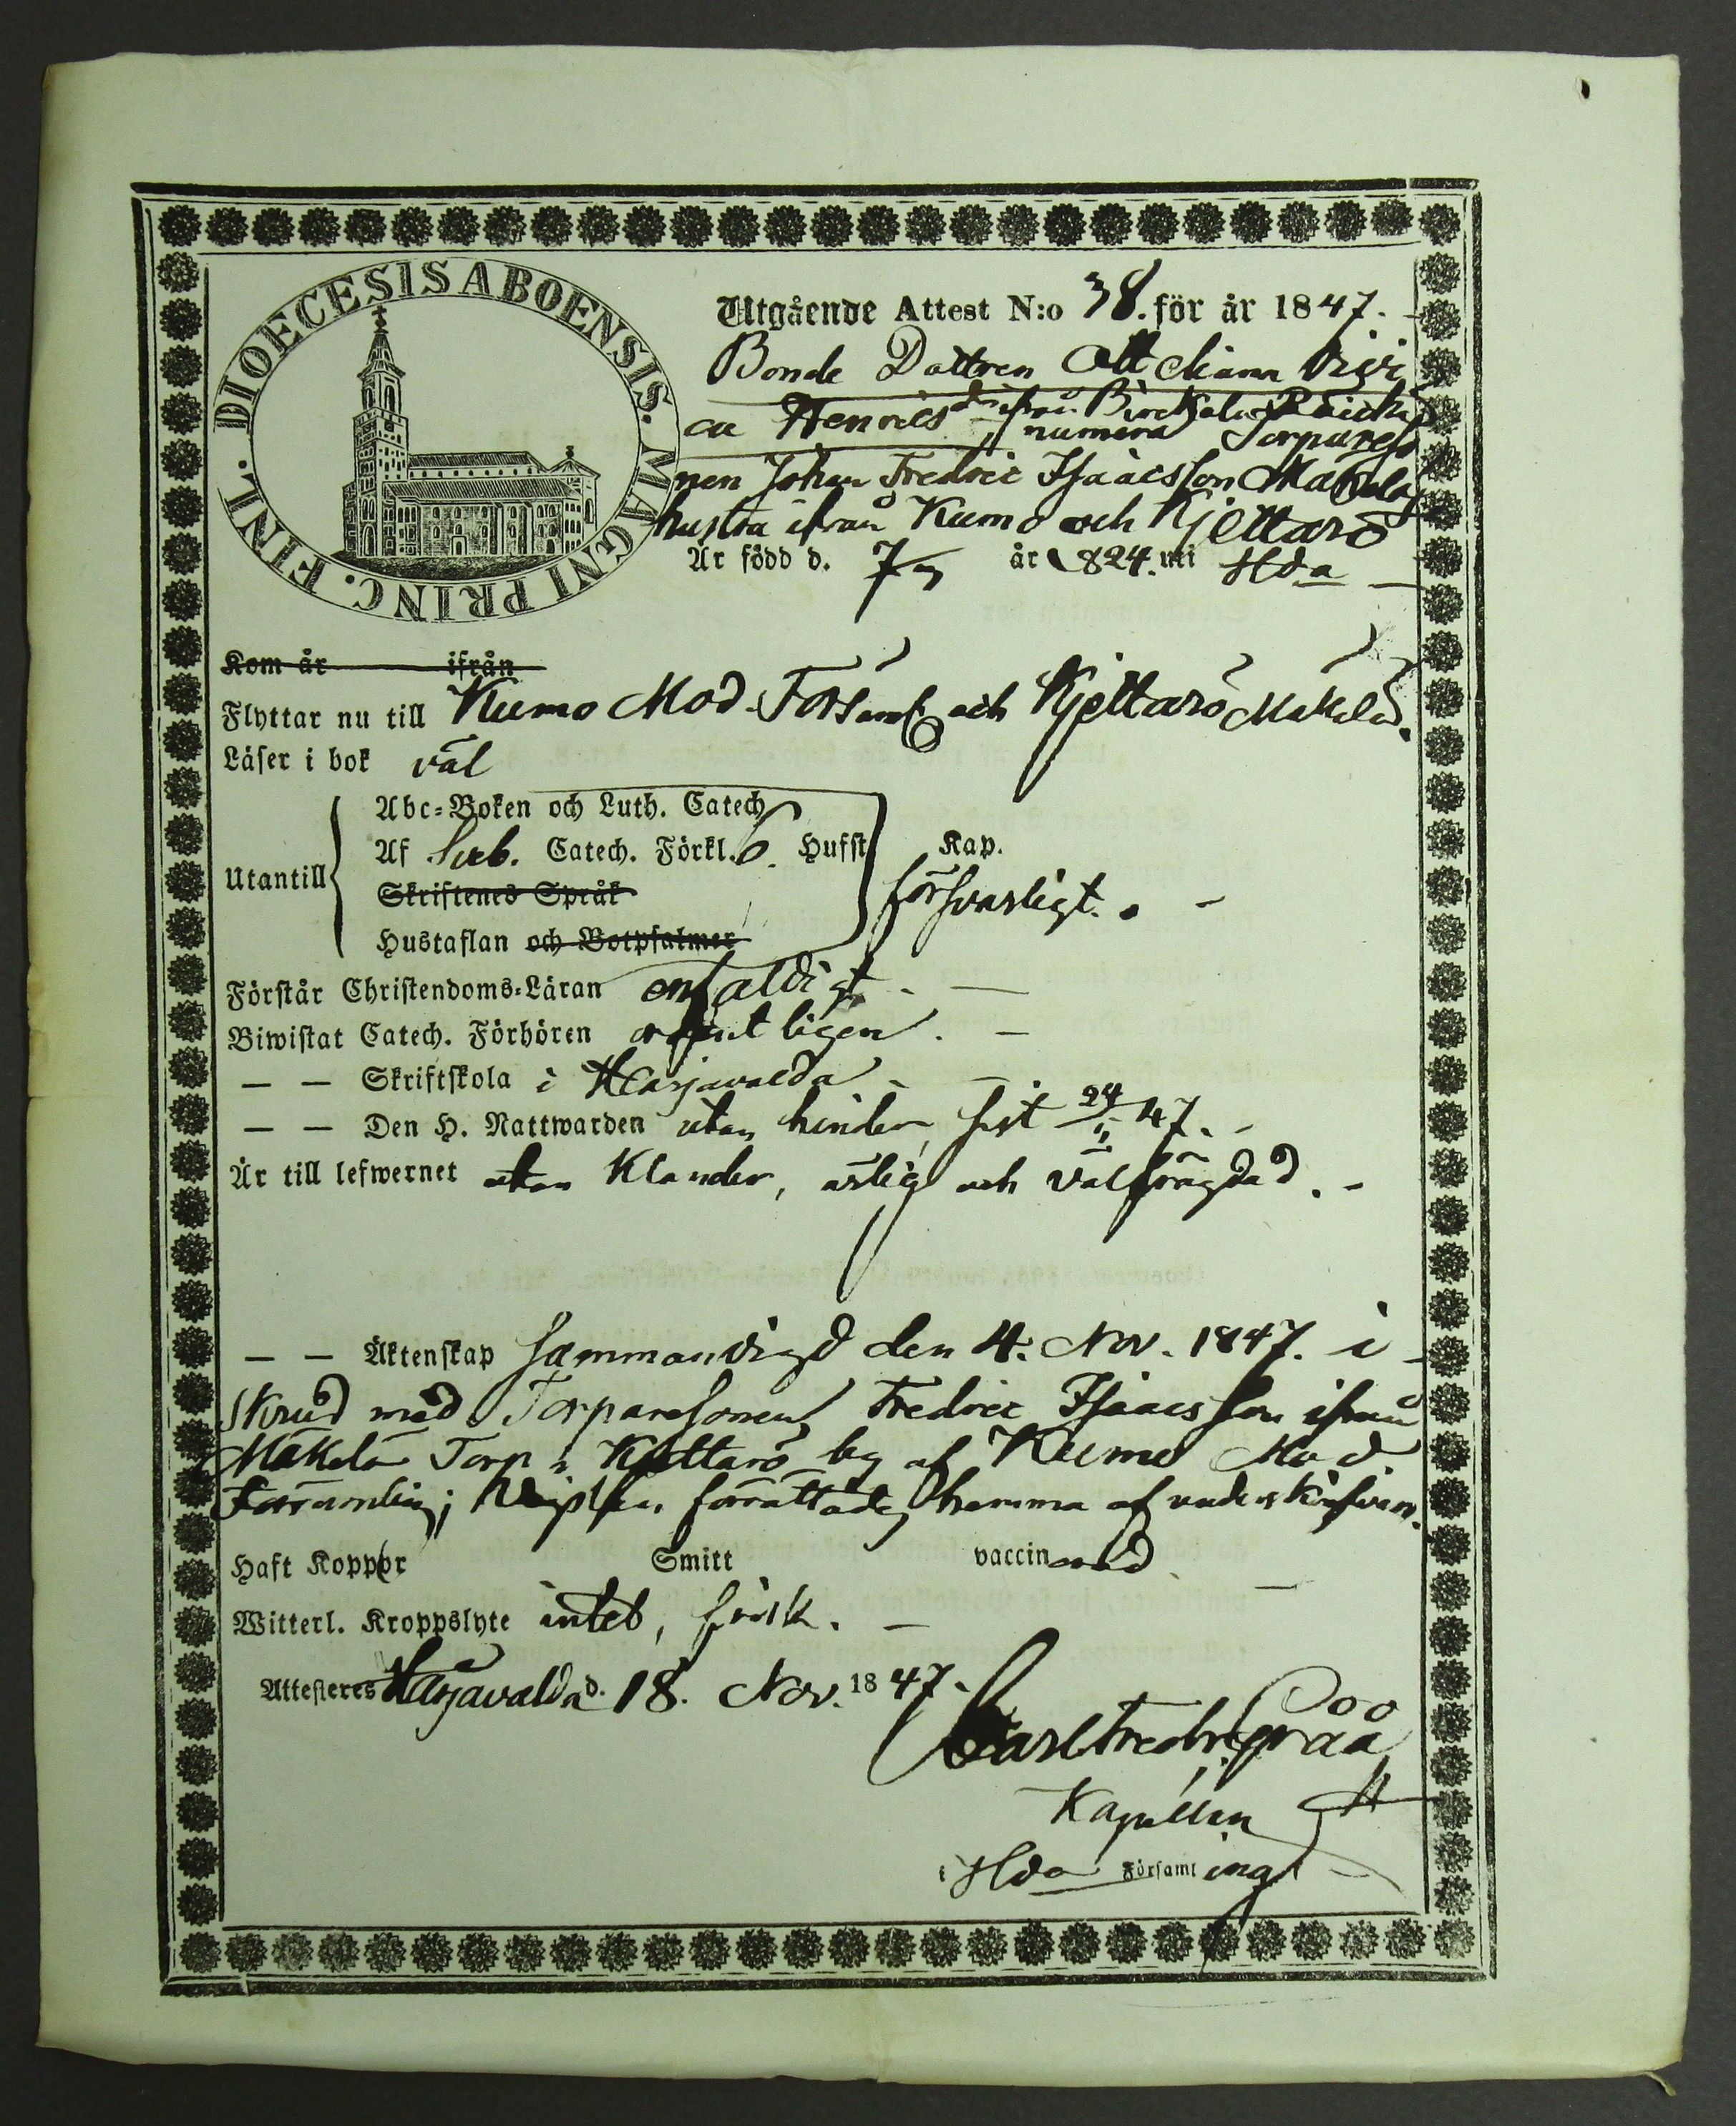 DIOECESIS ABOENSIS. MAGNI PRINC. FINL.
Utgående Attest N:o 38. för år 1847.
Bonde Dottren
Henrics ifrån
numera Torpareso
nen Johan Fredric Isaacsson Mäkelä
hustra ifrån Kumo och Kjettarö
Är född d. 7/ år 1824. uti Hda
Kom år ifrån
Flyttar nu till Kumo Mod. Församl och Kjettarö Mäkelä.
Läser i bok väl
Abc-Boken och Luth. Catech
Af Sveb. Catech. Förkl. 6. Hufst Kap.
Utantill
Skriftenes Språk
försvarligt.
Hustaflan och Botpsalmer
Förstår Christendoms-Läran enfaldigt.
Biwistat Catech. Förhören ordentligen.
— — Skriftskola i Harjavalda
— — Den H. Nattwarden utan hinder, sist 24/ 47.
Är till lefwernet utan klander, ärlig och välfrägdad.
— — Äktenskap sammanvigd den 4. Nov. 1847. i
skrud med Torparesonen Fredric Isaacsson ifrån
Mäkelä Torp i Kjettarö by af Kumo Mod.
Församling; Vigseln förrättades hemma af undertecknad.
Haft Koppor Smitt vaccinerad
Witterl. Kroppslyte intet, frisk.
Attesteres Harjavalda d. 18. Nov. 1847.
Carl Fredr. Gråå
Kapellan
i Hda Församling